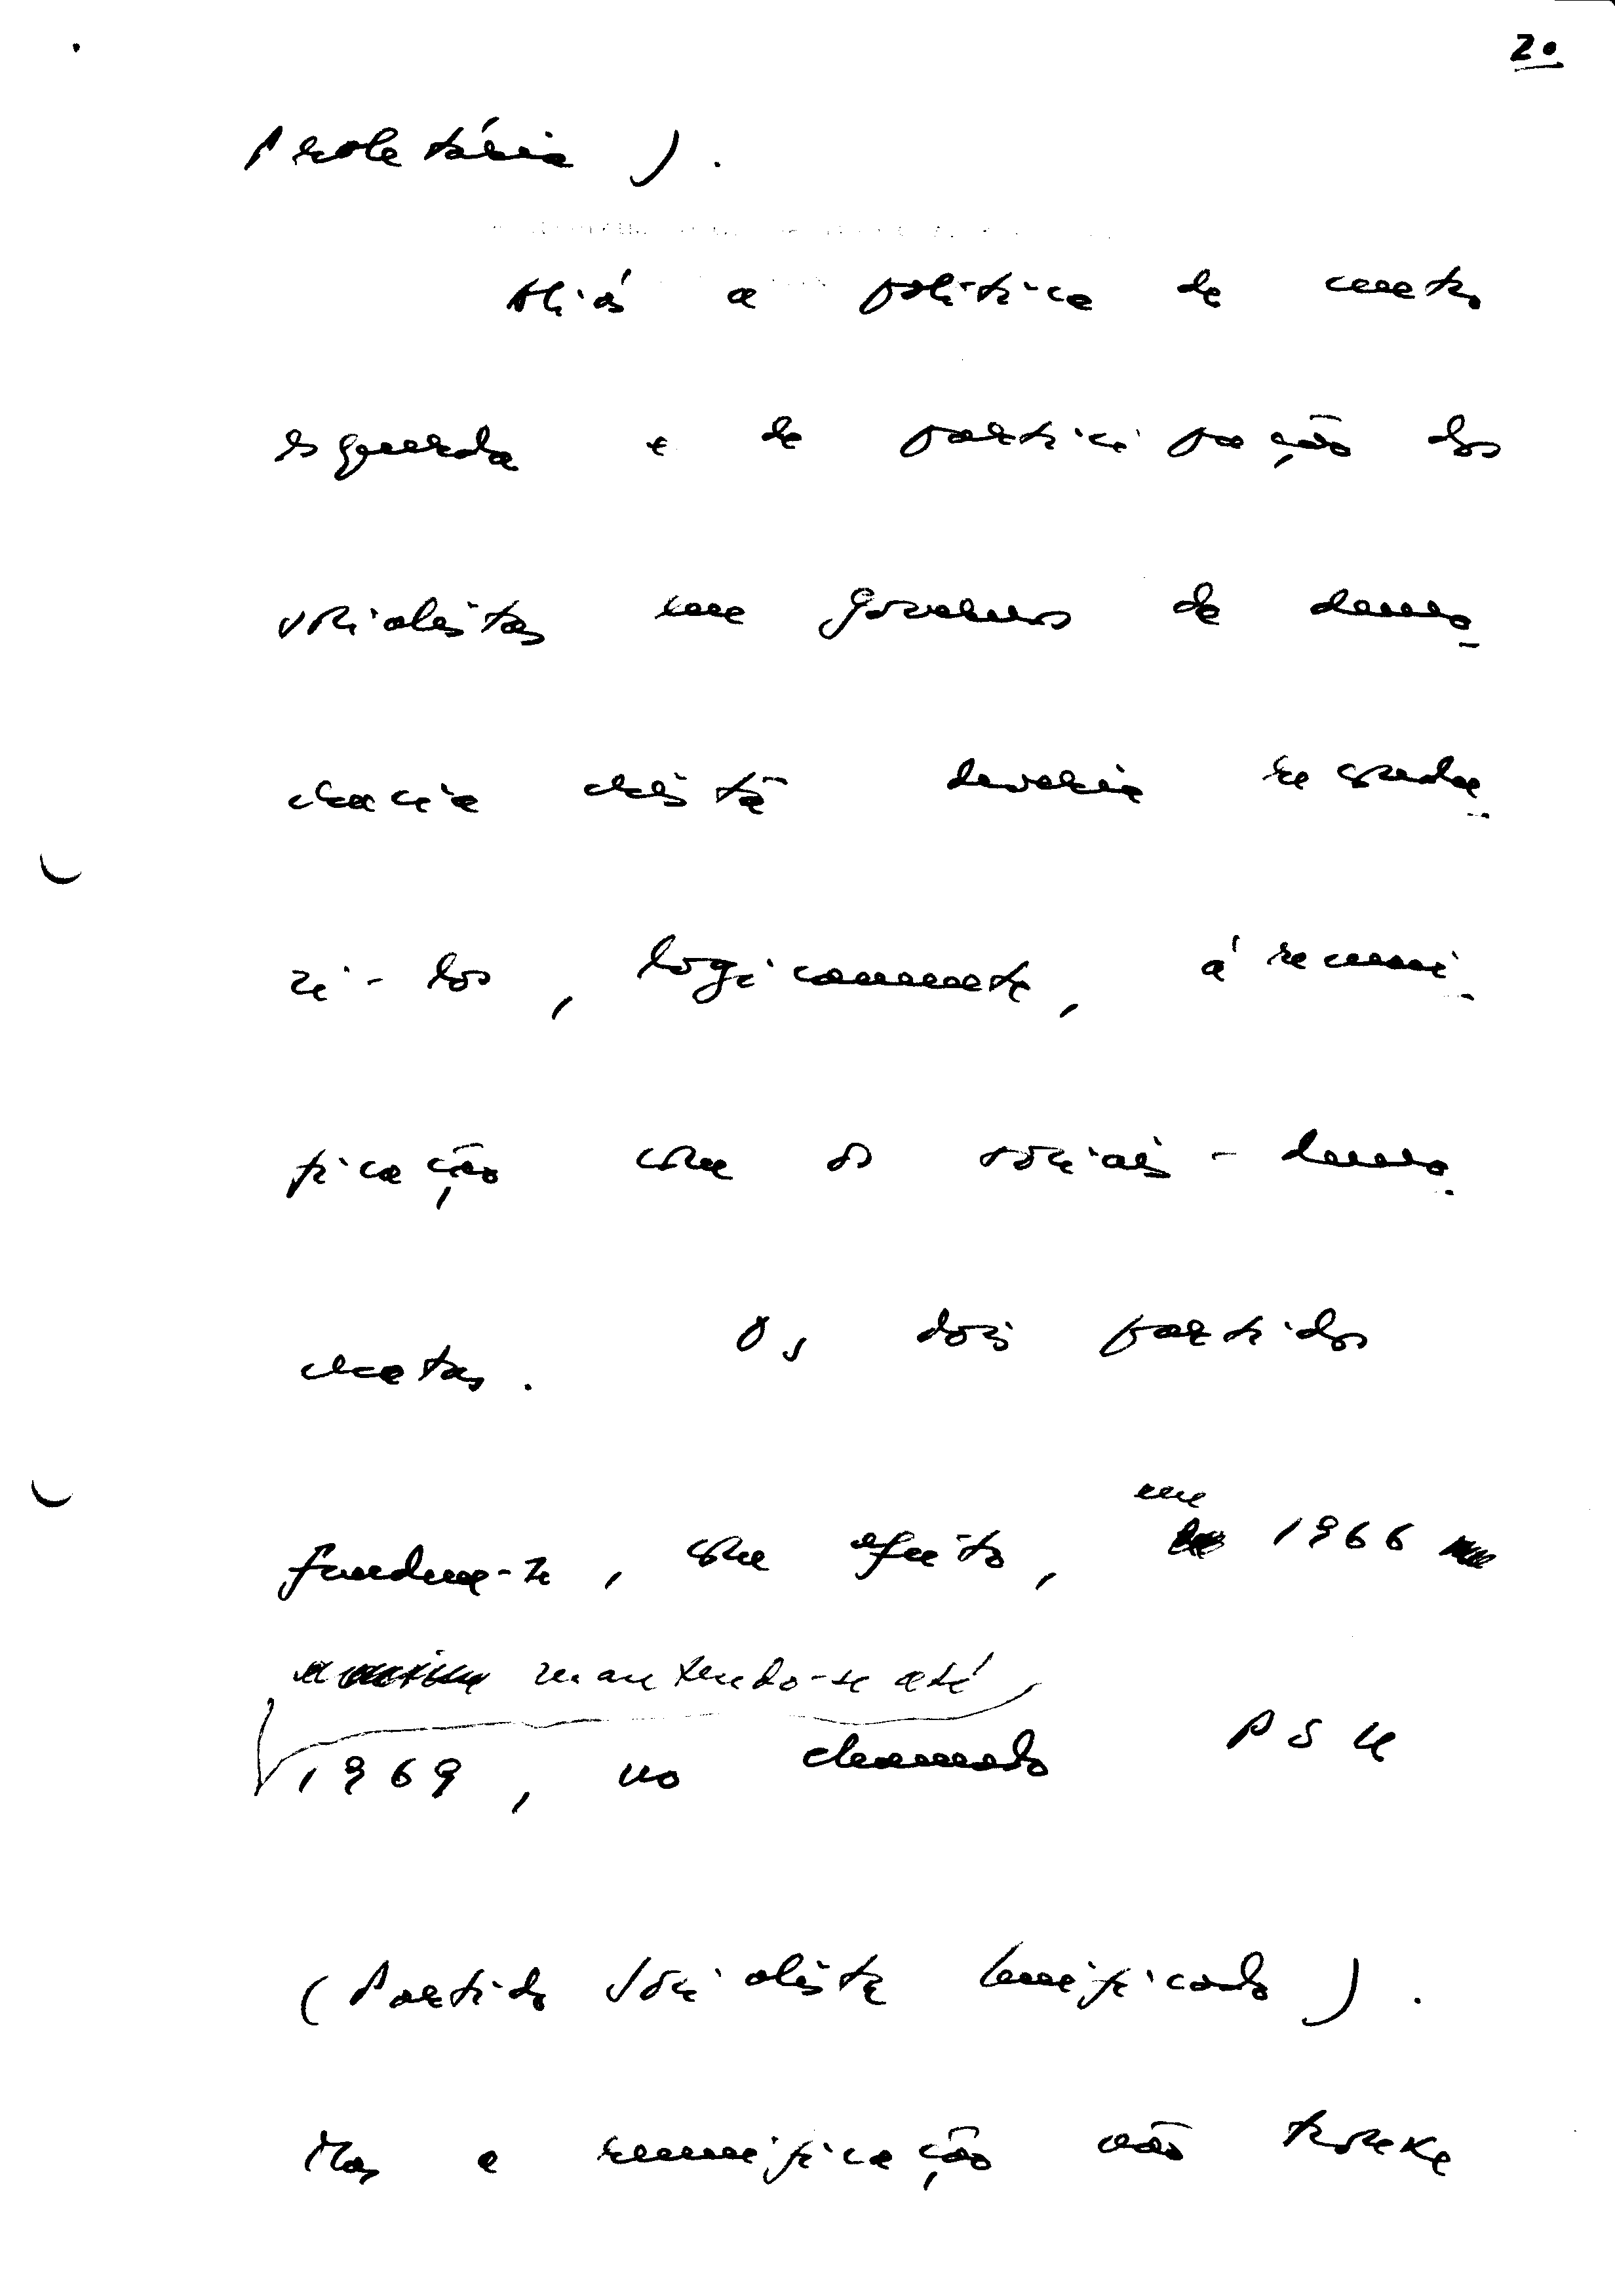 20
proletária).
Aliás a política de centro
esquerda e de participação dos
socialistas em governos de demo-
cracia cristã deveria recondu-
zi-los, logicamente, á reuni-
ficação com os sociais-demo-
cratas. Os dois partidos
fundem-se, com efeito, em 1966
mantendo-se até
1969, no chamado PSU
(Partido Socialista Unificado).
Mas a reunificação não trouxe